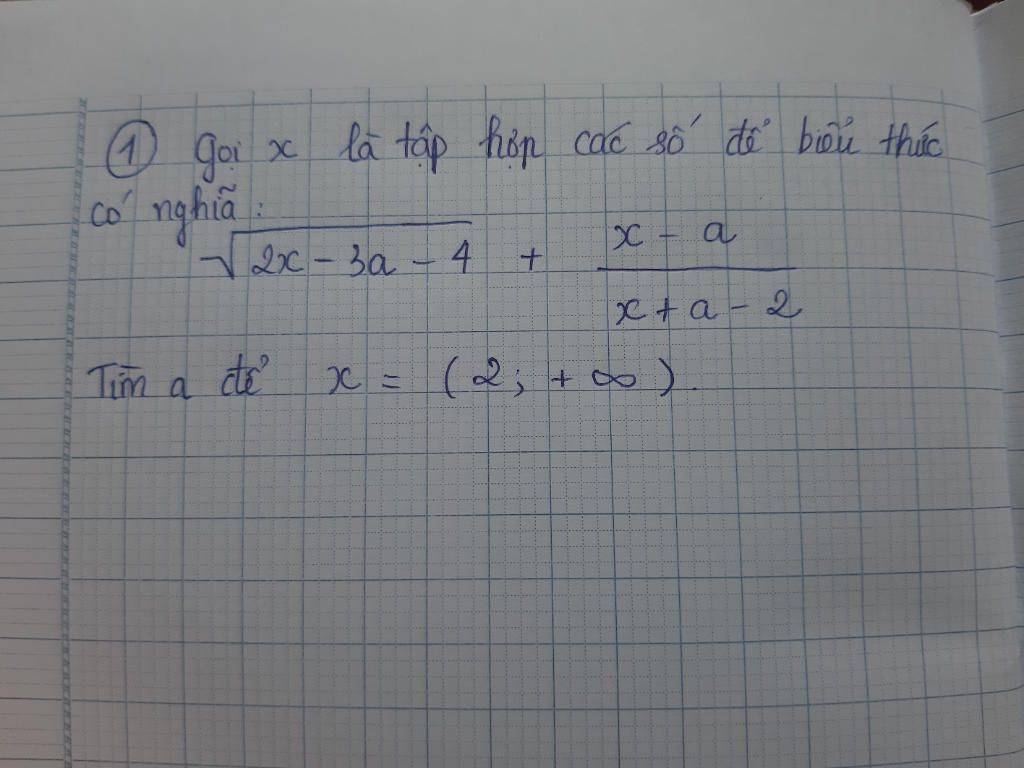 ① Gọi x là tập hợp các số để biểu thức
có nghĩa:
√(2x - 3a - 4) + (x - a)/(x + a - 2)
Tìm a để x = (2; +∞).